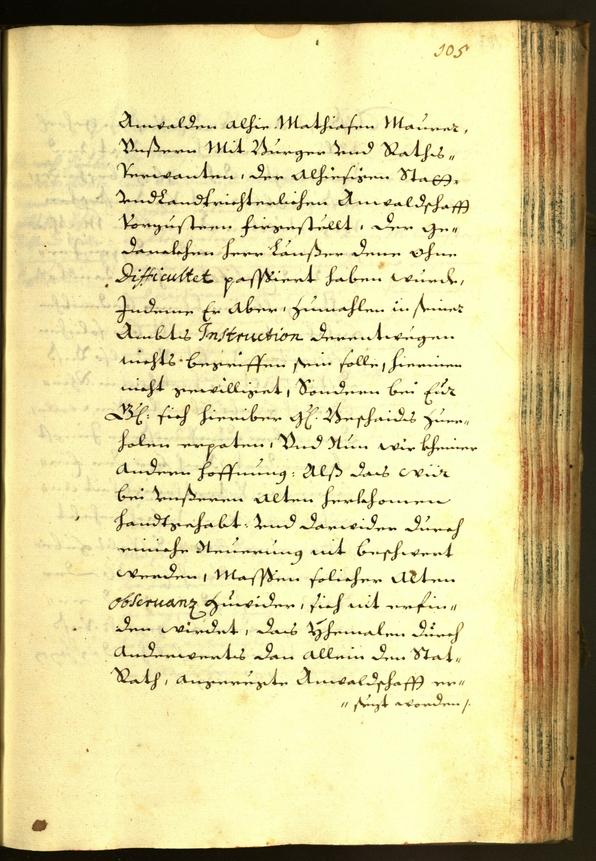 105
Anwalden alhie Mathiasen Maurer,
Unßern Mit Burger und Raths„
Verwanten, der Alhiesigen Statt:
und Landtrichterlichen Anwaldschafft
Vorzusteen firgestellt, der ge„
dachten herr dene ohne
Difficultet passiert haben wurde,
Indeme Er aber, zumahlen in seiner
Ambts Instruction derentwegen
nichts begriffen sein solle, hierinen
nicht gewilliget, Sondern bei Eur
sich hieriber Beschaids zuer„
holen erpoten, Und Nun wir kheiner
andern hoffnung: Alß das wür
bei unßerem alten herkhomen
handtgehabt: und darwider durch
einiche Neuerung nit beschwert
werden, Massen solicher Alten
observanz zuwider, sich nit erfin„
den wirdet, das Yhemalen durch
anderwerts dan allein den Stat„
Rath, angeregte Anwaldschafft er„
„sezt worden/.